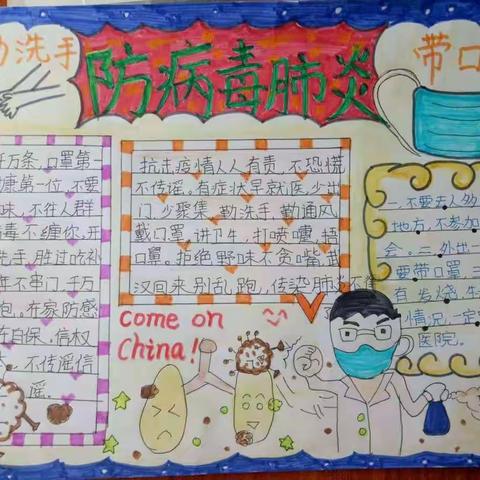 勤洗手
防病毒肺炎
带口
千万条,口罩第一
健康第一位,不要
味,不往人群
病毒不缠你,开
洗手,胜过吃补
年不串门,千万
跑。在家防感
自保,信权
不传谣信
谣。
抗击疫情人人有责,不恐慌
不传谣。有症状早就医,少出
门,少聚集,勤洗手,勤通风
戴口罩,讲卫生,打喷嚏,捂
口鼻。拒绝野味不贪嘴,武
汉回来,别乱跑,传染肺炎不
一、不要去人多
地方,不参加
会。二、外出一
要带口罩,三
有发烧,
情况,一定
医院。
Come on
China!